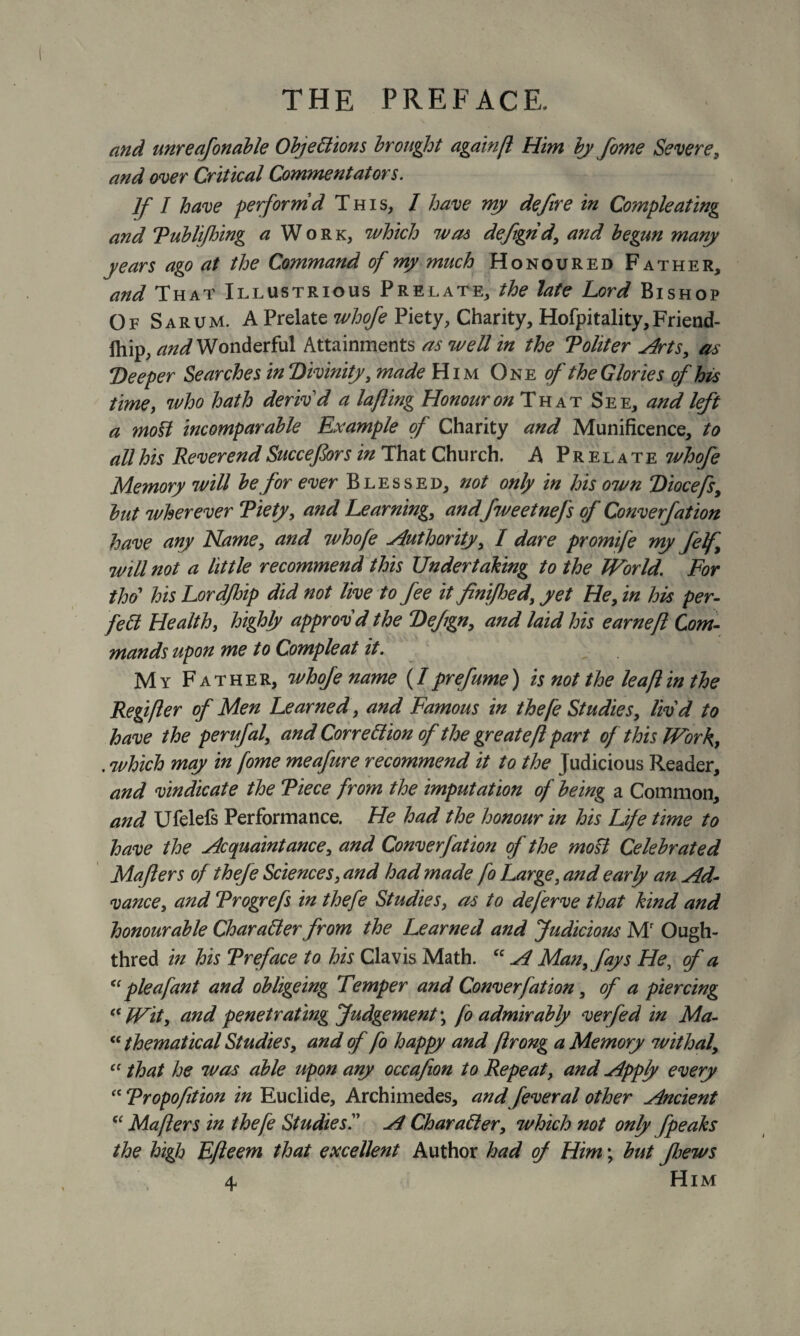 THE PREFACE.
and unreaſonable Objections brought againſt Him by ſome Severe,
and over Critical Commentators.
If I have perform'd This, I have my deſire in Compleating
and Publiſhing a Work, which was deſign'd, and begun many
years ago at the Command of my much Honoured Father,
and That Illustrious Prelate, the late Lord Bishop
Of Sarum. A Prelate whoſe Piety, Charity, Hoſpitality, Friend-
ſhip, and Wonderful Attainments as well in the Politer Arts, as
Deeper Searches in Divinity, made Him One of the Glories of his
time, who hath deriv'd a laſting Honour on That See, and left
a moſt incomparable Example of Charity and Munificence, to
all his Reverend Succeſſors in That Church. A Prelate whoſe
Memory will be for ever Blessed, not only in his own Dioceſs,
but wherever Piety, and Learning, and ſweetneſs of Converſation
have any Name, and whoſe Authority, I dare promiſe my ſelf,
will not a little recommend this Undertaking to the World. For
tho' his Lordſhip did not live to ſee it finiſhed, yet He, in his per-
fect Health, highly approv'd the Deſign, and laid his earneſt Com-
mands upon me to Compleat it.
My Father, whoſe name (I preſume) is not the leaſt in the
Regiſter of Men Learned, and Famous in theſe Studies, liv'd to
have the peruſal, and Correction of the greateſt part of this Work,
which may in ſome meaſure recommend it to the Judicious Reader,
and vindicate the Piece from the imputation of being a Common,
and Uſeleſs Performance. He had the honour in his Life time to
have the Acquaintance, and Converſation of the moſt Celebrated
Maſters of theſe Sciences, and had made ſo Large, and early an Ad-
vance, and Progreſs in theſe Studies, as to deſerve that kind and
honourable Character from the Learned and Judicious Mr Ough-
thred in his Preface to his Clavis Math. “ A Man, ſays He, of a
“ pleaſant and obligeing Temper and Converſation, of a piercing
“ Wit, and penetrating Judgement; ſo admirably verſed in Ma-
“ thematical Studies, and of ſo happy and ſtrong a Memory withal,
“ that he was able upon any occaſion to Repeat, and Apply every
“ Propoſition in Euclide, Archimedes, and ſeveral other Ancient
“ Maſters in theſe Studies.” A Character, which not only ſpeaks
the high Eſteem that excellent Author had of Him; but ſhews
4 Him